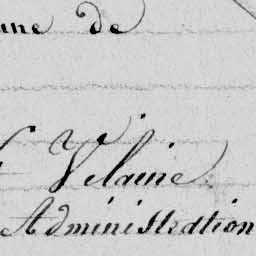 de
Vilaine
Administration